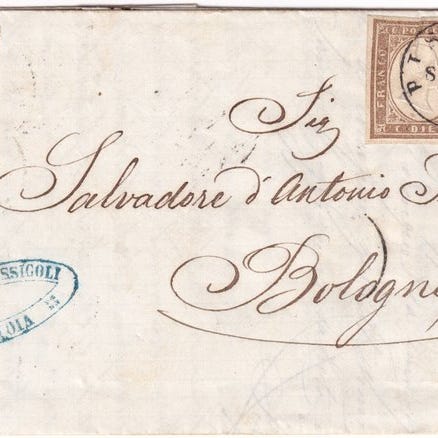 C. PO
FRANCO
C. DIE
PIS
S
Sig
Salvadore d'Antonio
Bologn
SSIGOLI
OIA